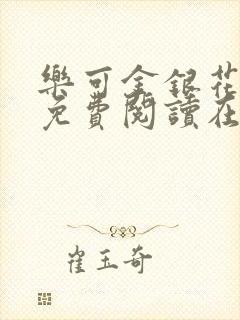 樂可金銀花
免費閱讀在
崔玉奇